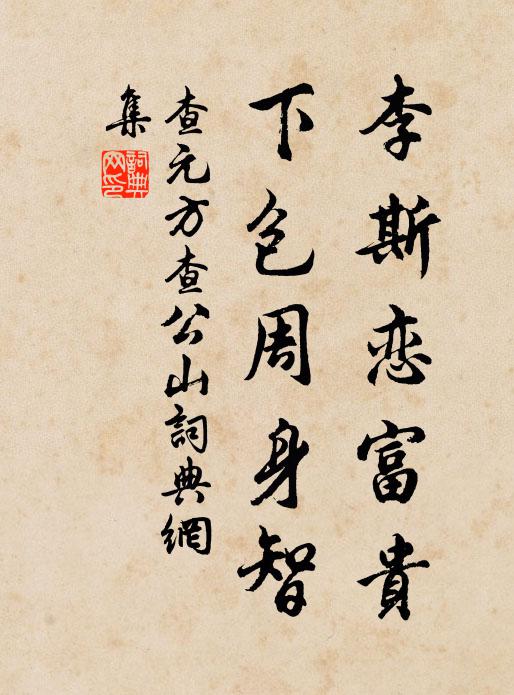 李斯恋富貴
下包周身智
查元方查公山詞典網
集
詞典
网印